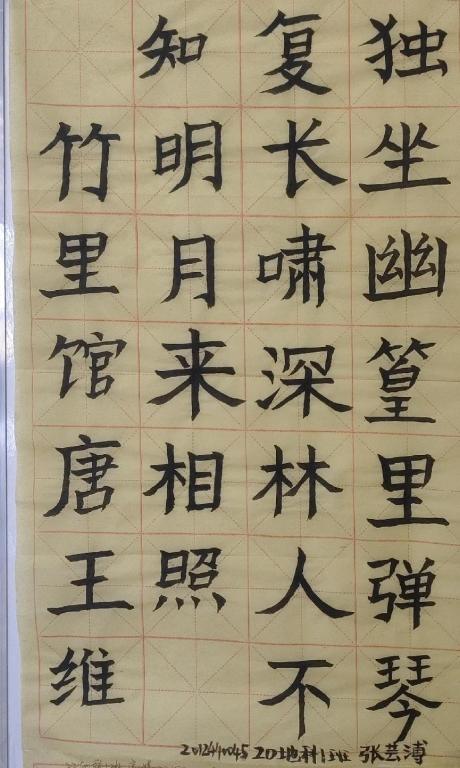 独坐幽篁里弹琴
复长啸深林人不
知明月来相照
竹里馆唐王维
2012441045 20地科1班 张芸溥